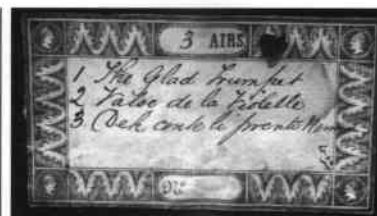 3 AIRS
1 The Glad Trumpet
2 Valse de la
3 Deh conte li prende
No